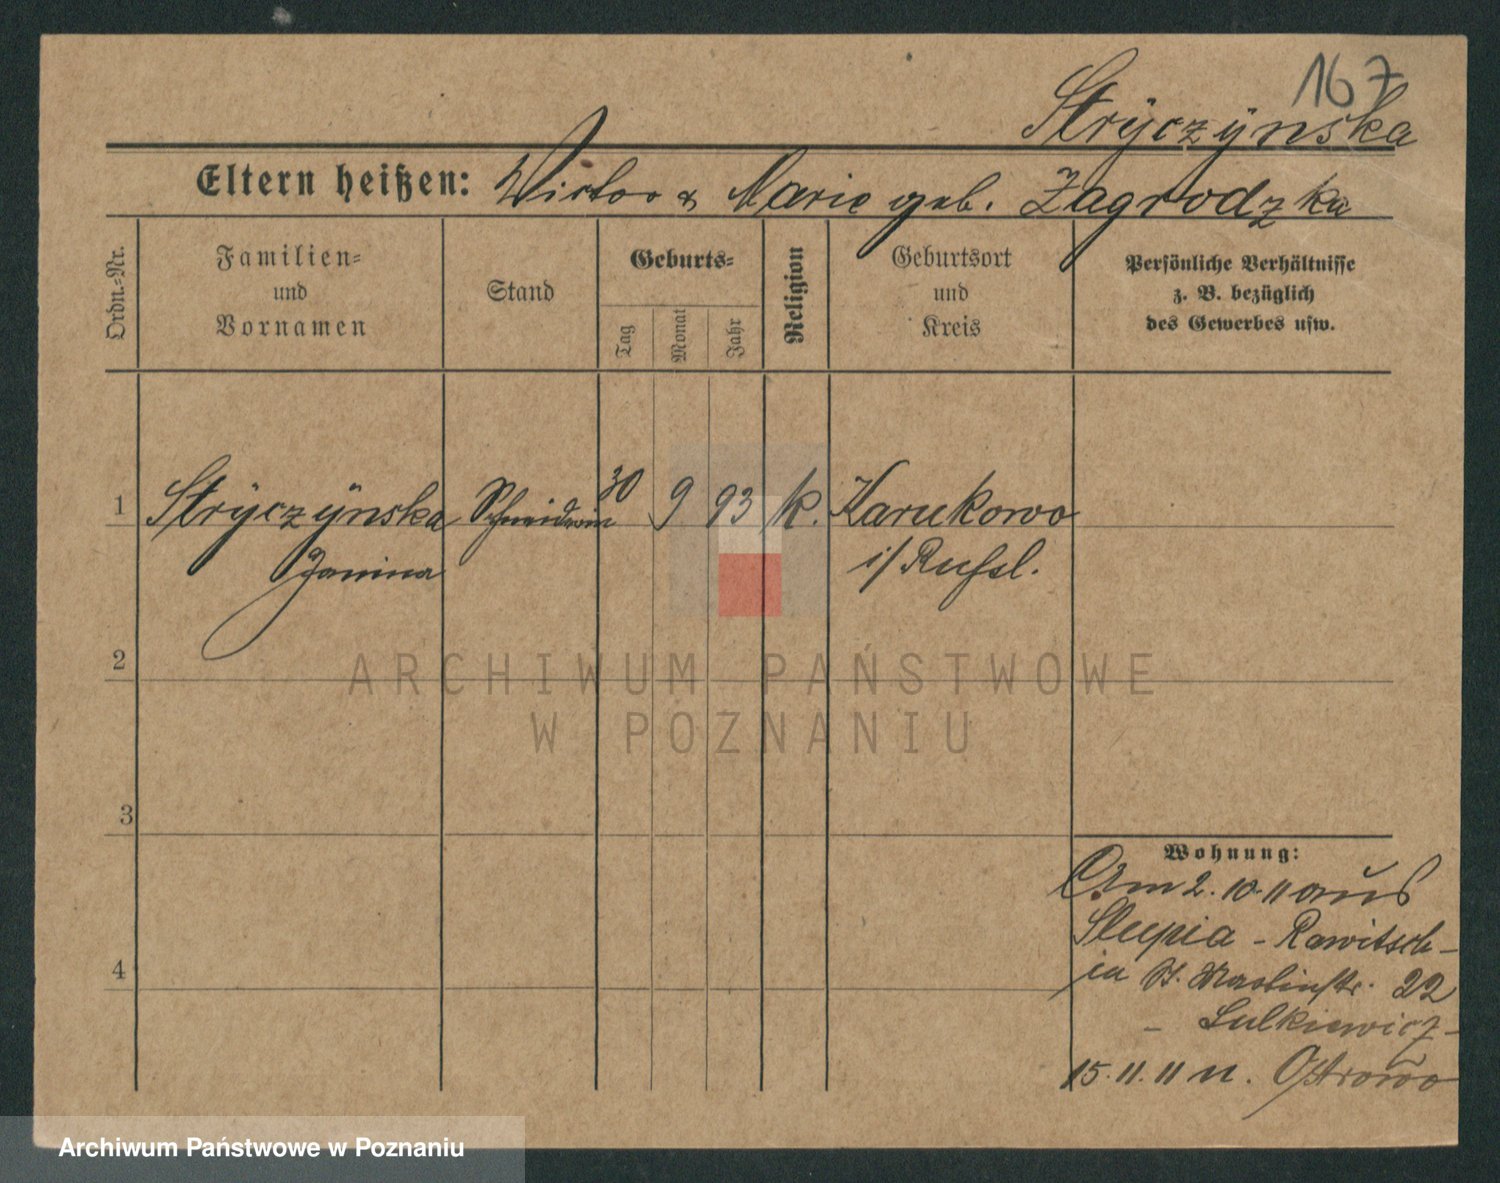 167
Stryczyńska
Eltern heißen: Victor & Marie geb. Zagrodzka
Ordn.-Nr.
Familien- und Vornamen
Stand
Geburts-
Tag
Monat
Jahr
Religion
Geburtsort und Kreis
Persönliche Verhältnisse
z. B. bezüglich
des Gewerbes usw.
1 Stryczyńska Schneiderin 30 9 93 k.
Janina i/ Rußl.
2
ARCHIWUM PAŃSTWOWE
W POZNANIU
3
Wohnung:
Am 2.10.11 aus
Slupia - Rawitsch -
in St. Martinstr. 22
- Sulkiewicz -
4
15.11.11 n. Ostrowo
Archiwum Państwowe w Poznaniu